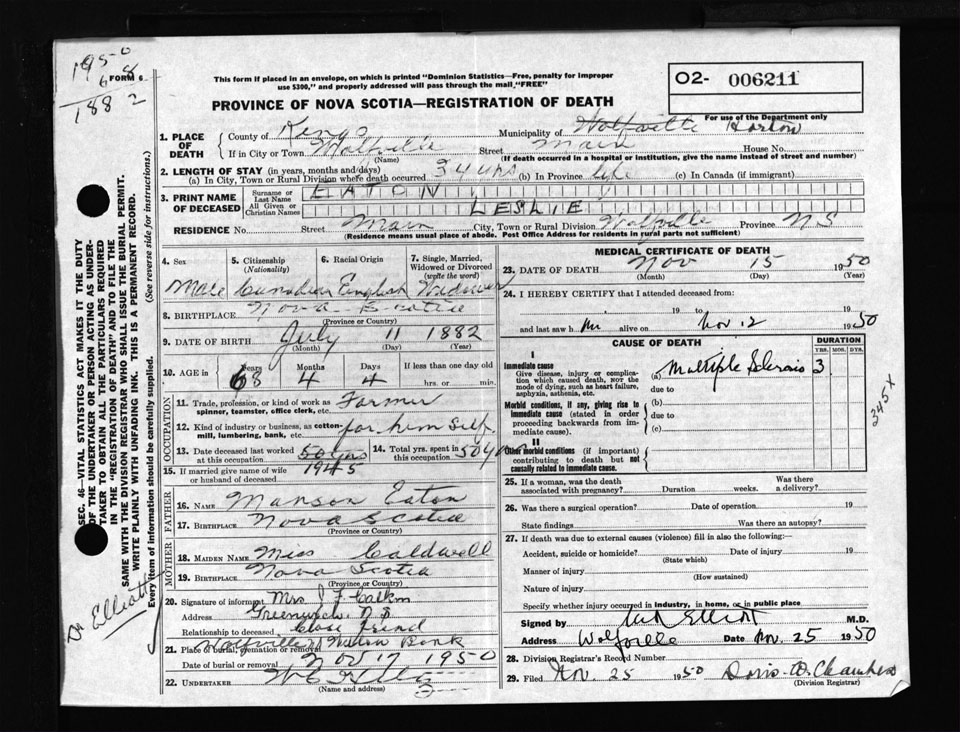 1950
68
1882
FORM 6
This form if placed in an envelope, on which is printed "Dominion Statistics—Free, penalty for improper
use $300," and properly addressed will pass through the mail, "FREE"
O2- 006211
For use of the Department only
PROVINCE OF NOVA SCOTIA—REGISTRATION OF DEATH
1. PLACE OF DEATH
County of Kings Municipality of Wolfville Horton
If in City or Town Wolfville (Name) Street Main House No.
(If death occurred in a hospital or institution, give the name instead of street and number)
2. LENGTH OF STAY (in years, months and/days)
(a) In City, Town or Rural Division where death occurred 34 yrs (b) In Province life (c) In Canada (if immigrant)
3. PRINT NAME OF DECEASED
Surname or Last Name EATON
All Given or Christian Names LESLIE
RESIDENCE No. Street Main City, Town or Rural Division Wolfville Province NS
(Residence means usual place of abode. Post Office Address for residents in rural parts not sufficient)
4. Sex 5. Citizenship (Nationality) 6. Racial Origin 7. Single, Married, Widowed or Divorced (write the word)
Male Canadian English Widower
8. BIRTHPLACE Nova Scotia
(Province or Country)
9. DATE OF BIRTH July 11 1882
(Month) (Day) (Year)
10. AGE in Years Months Days If less than one day old
68 4 4 hrs. or min.
OCCUPATION
11. Trade, profession, or kind of work as spinner, teamster, office clerk, etc. Farmer
12. Kind of industry or business, as cotton-mill, lumbering, bank, etc. for him self
13. Date deceased last worked at this occupation 50 yrs 1945
14. Total yrs. spent in this occupation 50 years
15. If married give name of wife or husband of deceased
FATHER
16. NAME Manson Eaton
17. BIRTHPLACE Nova Scotia
(Province or Country)
MOTHER
18. MAIDEN NAME Miss Caldwell
19. BIRTHPLACE Nova Scotia
(Province or Country)
20. Signature of informant Mrs J F Calkin
Address Greenwich N.S
Relationship to deceased Close Friend
21. Place of burial, cremation or removal Wolfville Bank
Date of burial or removal Nov 17 1950
22. UNDERTAKER
(Name and address)
MEDICAL CERTIFICATE OF DEATH
23. DATE OF DEATH Nov 15 1950
(Month) (Day) (Year)
24. I HEREBY CERTIFY that I attended deceased from:
, 19 to Nov 12
and last saw h im alive on 1950
CAUSE OF DEATH
DURATION
YRS. MOS. DYS.
I
Immediate cause
Give disease, injury or complication which caused death, NOT the mode of dying, such as heart failure, asphyxia, asthenia, etc.
(a) Multiple Sclerosis 3
due to
Morbid conditions, if any, giving rise to immediate cause (stated in order proceeding backwards from immediate cause).
(b)
due to
(c)
II
Other morbid conditions (if important) contributing to death but not causally related to immediate cause.
345X
25. If a woman, was the death associated with pregnancy? Duration weeks. Was there a delivery?
26. Was there a surgical operation? Date of operation 19
State findings Was there an autopsy?
27. If death was due to external causes (violence) fill in also the following:—
Accident, suicide or homicide? Date of injury 19
(State which)
Manner of injury
(How sustained)
Nature of injury
Specify whether injury occurred in industry, in home, or in public place
Signed by Elliott M.D.
Address Wolfville Date Nov. 25 1950
28. Division Registrar's Record Number
29. Filed Nov. 25 1950 Doris Chambers
(Division Registrar)
SEC. 46—VITAL STATISTICS ACT MAKES IT THE DUTY
OF THE UNDERTAKER OR PERSON ACTING AS UNDER-
TAKER TO OBTAIN ALL THE PARTICULARS REQUIRED
IN THE "REGISTRATION OF DEATH" AND TO FILE THE
SAME WITH THE DIVISION REGISTRAR WHO SHALL ISSUE THE BURIAL PERMIT.
WRITE PLAINLY WITH UNFADING INK. THIS IS A PERMANENT RECORD.
Every item of information should be carefully supplied. (See reverse side for instructions.)
Dr Elliott